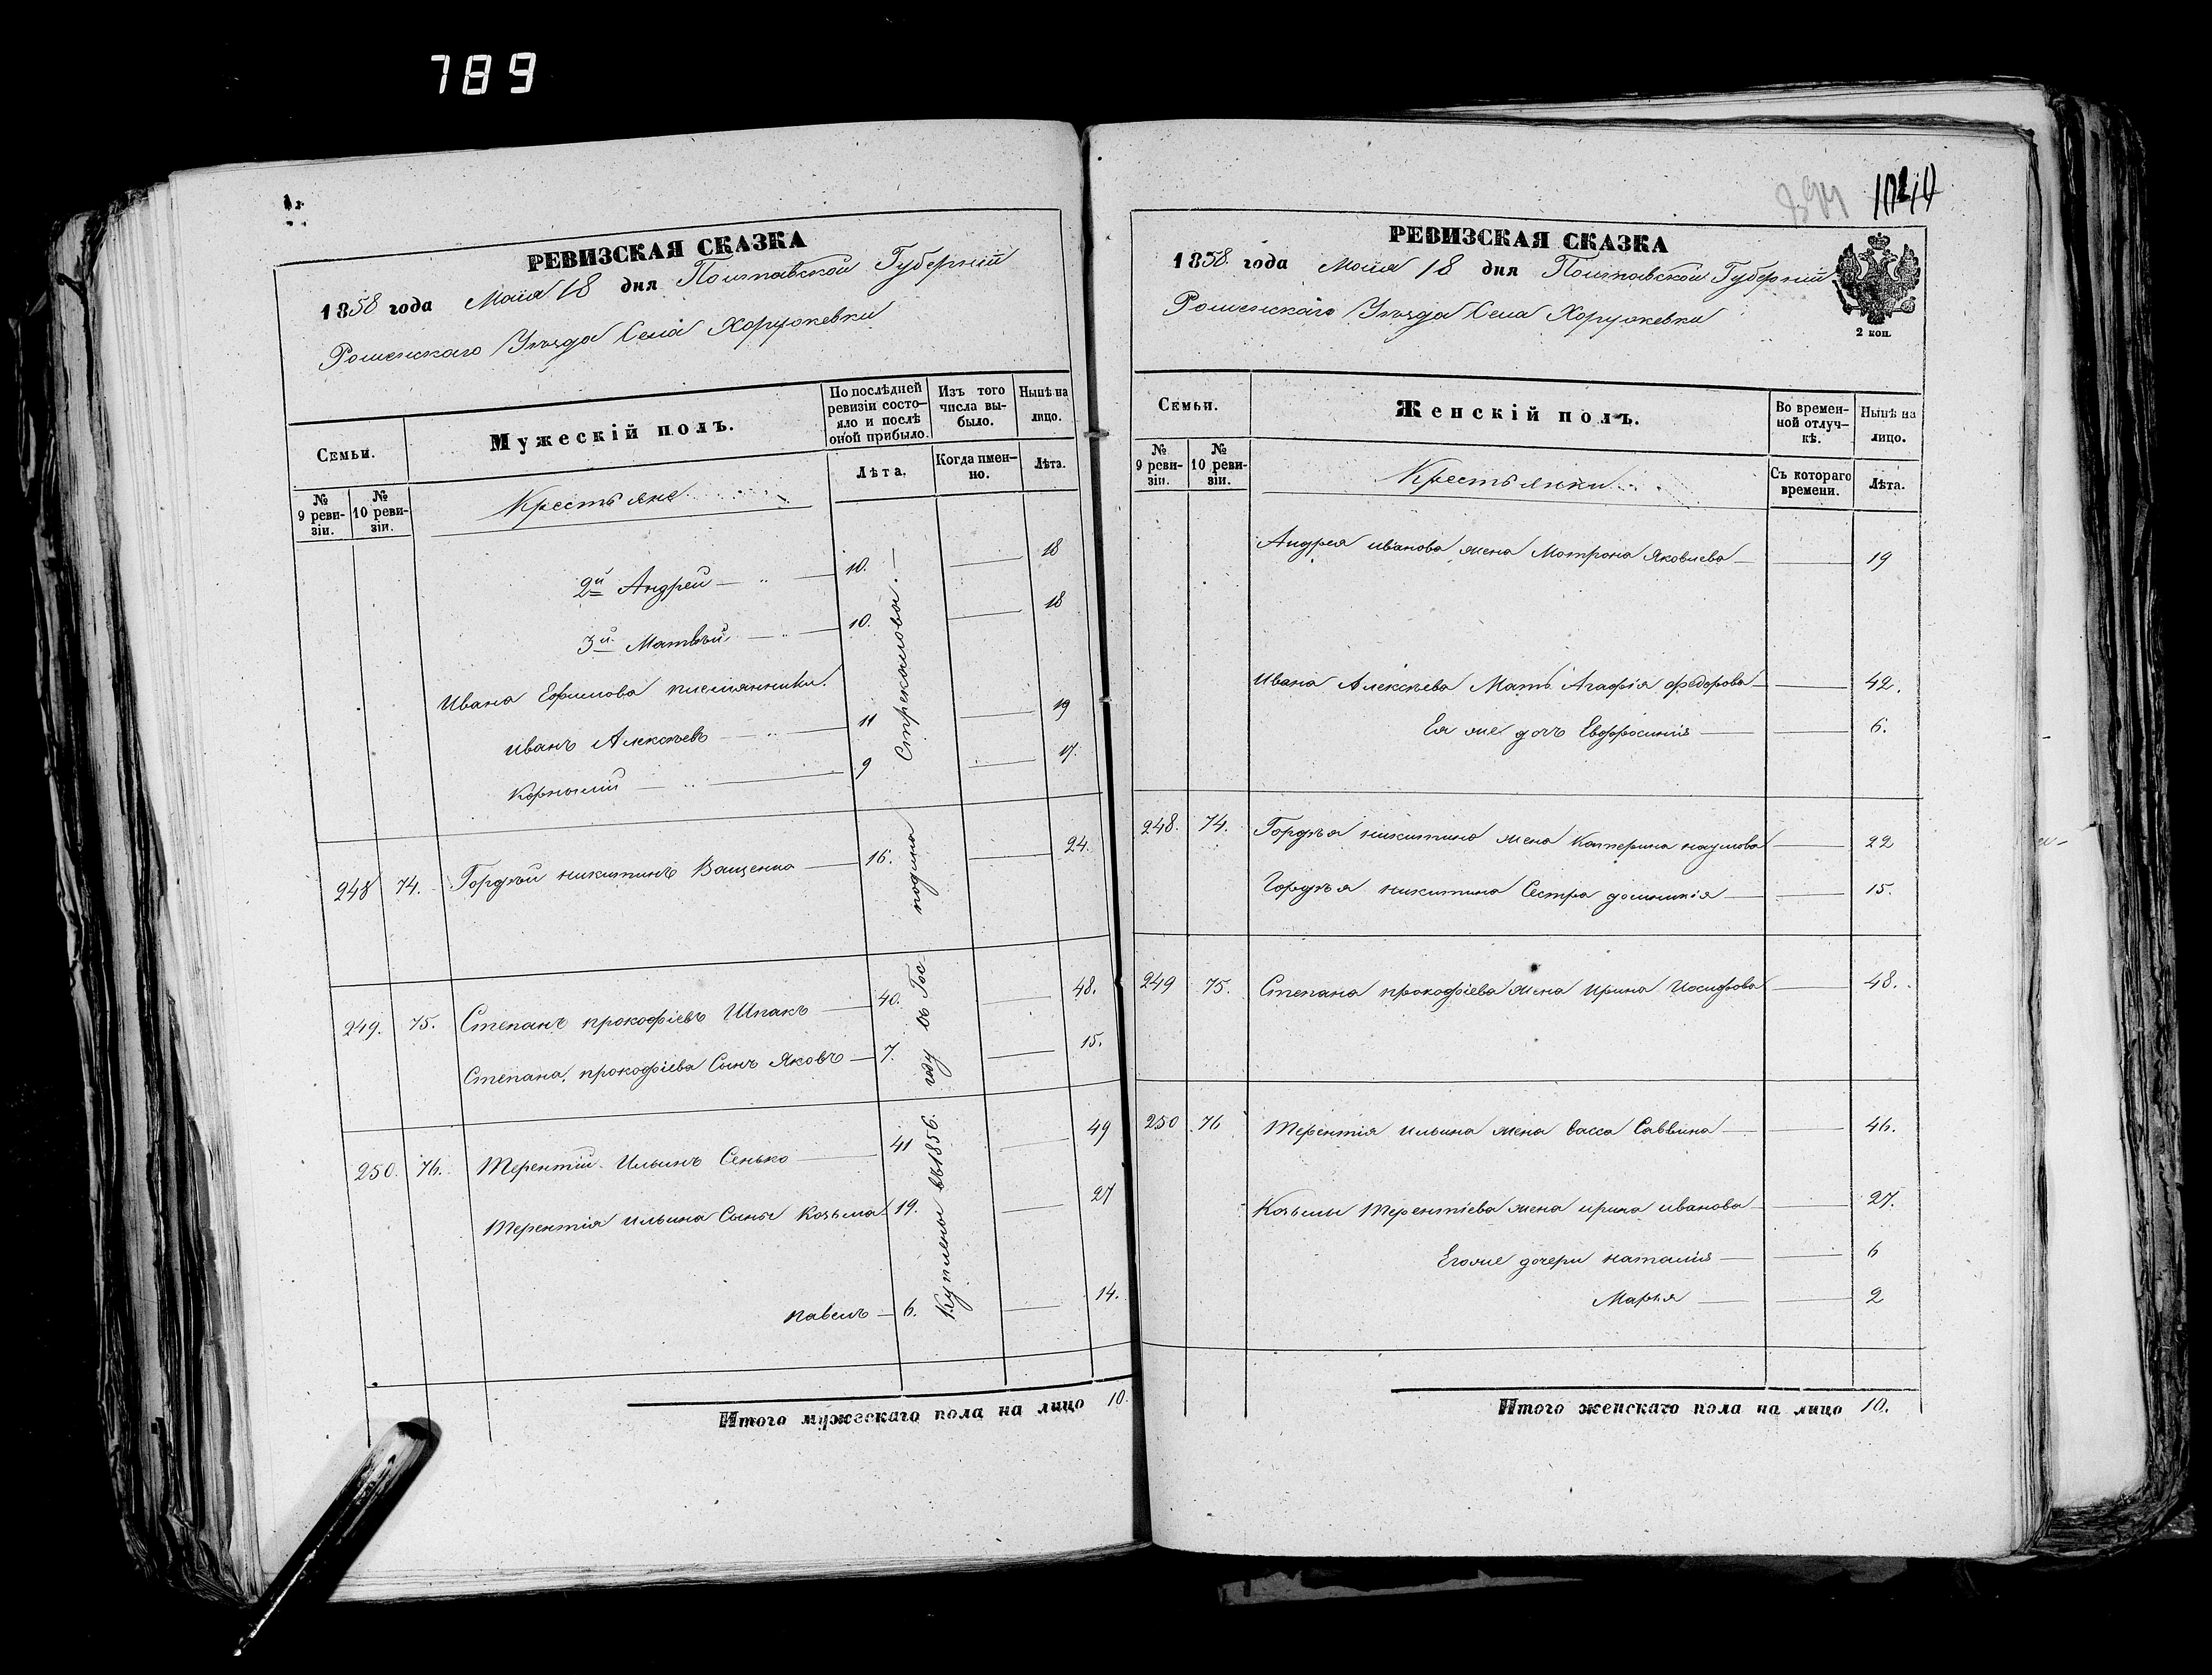 789
РЕВИЗСКАЯ СКАЗКА
1858 года Маія 18 дня Полтавской Губерніи
Роменскаго Уѣзда Села Хоружевки
Семьи.
Мужескій полъ.
По послѣдней ревизіи состояло и послѣ оной прибыло.
Изъ того числа выбыло.
Нынѣ на лицо.
№ 9 ревизіи.
№ 10 ревизіи.
Крестьяне
Лѣта.
Когда именно.
Лѣта.
2й Андрей — 10. — 18
3й Матвѣй — 10. — 18
Ивана Ефимова племянники.
Иванъ Алексѣевъ — 11 — 19
Корнилій — 9 — 17.
248 74. Гордѣй никитинъ Ващенко — 16. — 24.
249. 75. Степанъ прокофіевъ Шпакъ — 40. — 48.
Степана прокофіева Сынъ Яковъ — 7. — 15.
250. 76. Терентій Ильинъ Сенько — 41 — 49
Терентія ильина Сыны Козьма 19. — 27
павелъ — 6. — 14.
Куплены въ 1856. году въ Гос
подина Стрекаловы. —
Итого мужескаго пола на лицо 10.
1040
РЕВИЗСКАЯ СКАЗКА
1858 года Маія 18 дня Полтавской Губерніи
Роменскаго Уѣзда Села Хоружевки
2 коп.
Семьи.
Женскій полъ.
Во временной отлучкѣ.
Нынѣ на лицо.
№ 9 ревизіи.
№ 10 ревизіи.
Крестьянки
Съ котораго времени.
Лѣта.
Андрея иванова жена Мотрона Яковлева — 19
Ивана Алексѣева Мать Агафія федорова — 42.
Ея же дочь Евфросинія — 6.
248. 74. Гордѣя никитина жена Катерина наумова — 22
Гордѣя никитина Сестра домникія — 15.
249 75. Степана прокофіева жена Ирина Иосифова — 48.
250 76 Терентія ильина жена васса Саввина — 46.
Козьмы Терентіева жена ирина иванова — 27.
Его же дочери наталія — 6
Марья — 2
Итого женскаго пола на лицо 10.